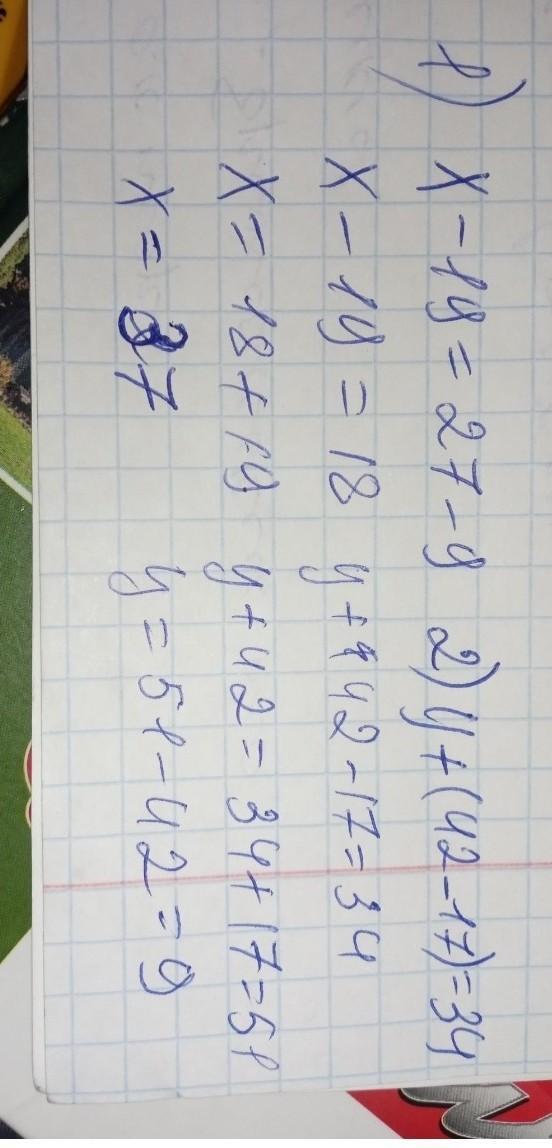 1) x - 19 = 27 - 9
x - 19 = 18
x = 18 + 19
x = 37
2) y + (42 - 17) = 34
y + 42 - 17 = 34
y + 42 = 34 + 17 = 51
y = 51 - 42 = 9